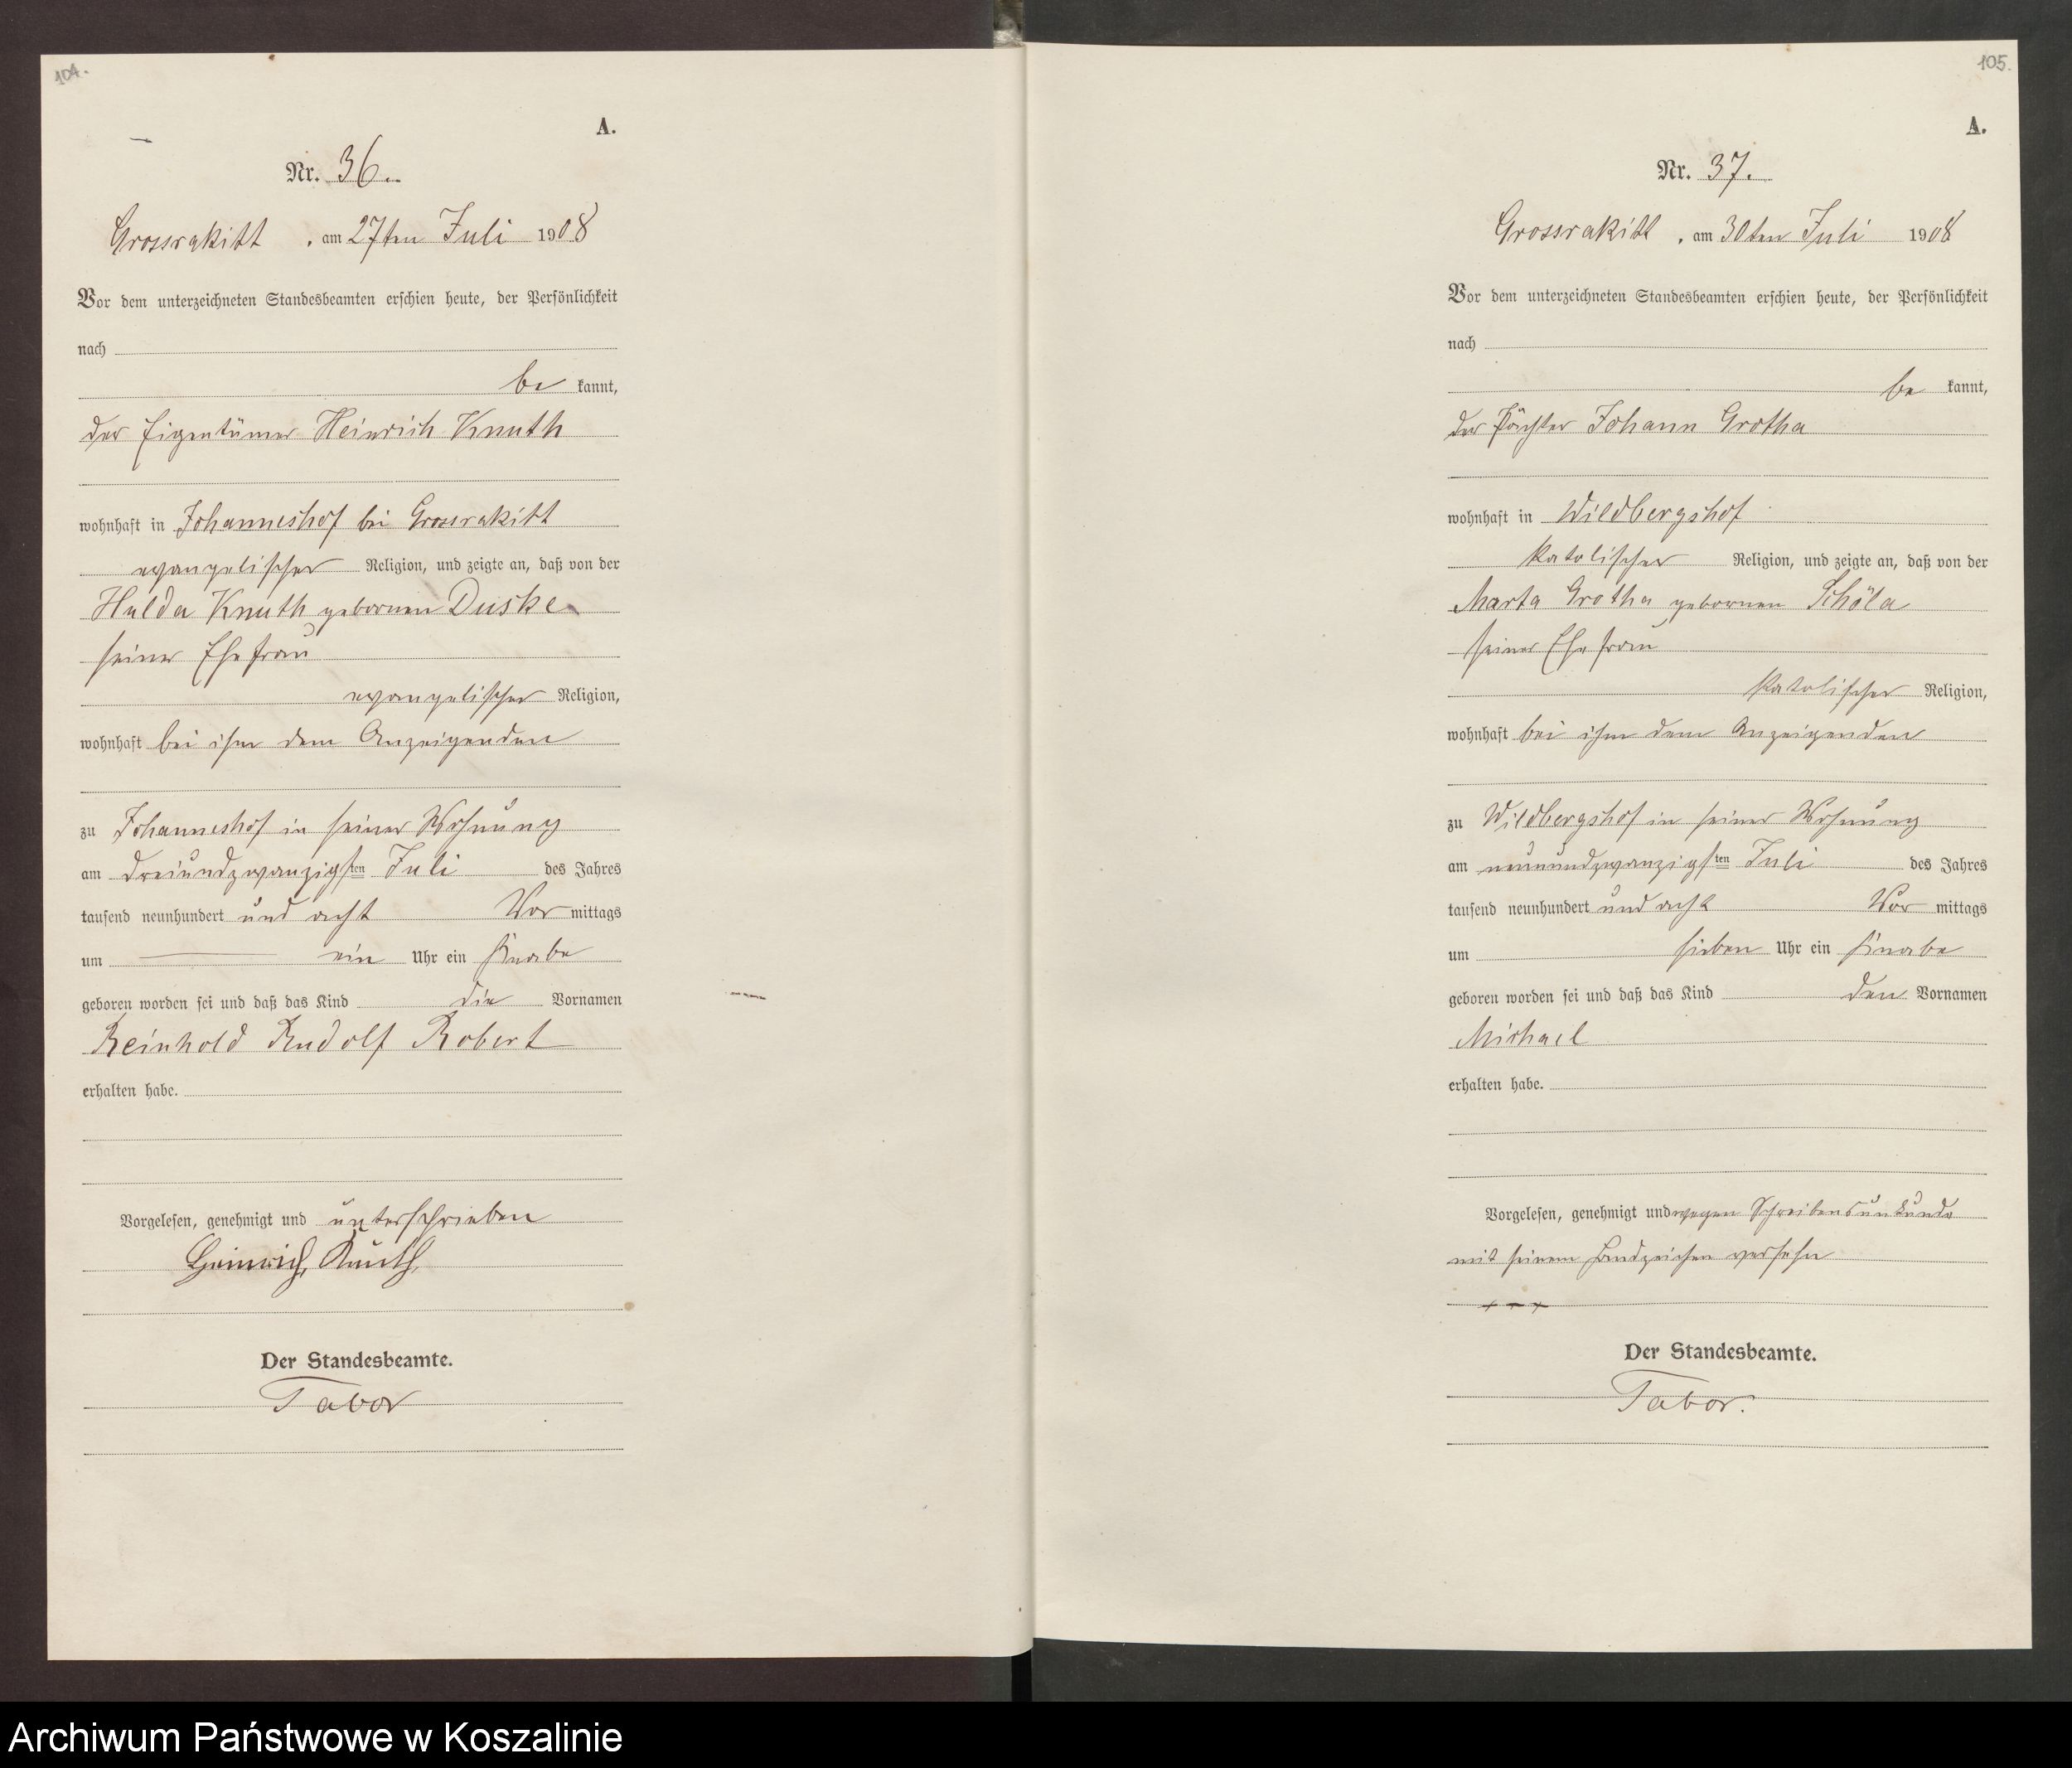 104.
A.
Nr. 36.
Grossrakitt, am 27ten Juli 1908
Vor dem unterzeichneten Standesbeamten erschien heute, der Persönlichkeit
nach
be kannt,
der Eigentümer Heinrich Knuth
wohnhaft in Johanneshof bei Grossrakitt
evangelischer Religion, und zeigte an, daß von der
Hulda Knuth gebornen Duske
seiner Ehefrau
evangelischer Religion,
wohnhaft bei ihm dem Anzeigenden
zu Johanneshof in seiner Wohnung
am dreiundzwanzigsten Juli des Jahres
tausend neunhundert und acht Vor mittags
um ein Uhr ein Knabe
geboren worden sei und daß das Kind die Vornamen
Reinhold Rudolf Robert
erhalten habe.
Vorgelesen, genehmigt und unterschrieben
Heinrich Knuth.
Der Standesbeamte.
Tabor
105.
A.
Nr. 37.
Grossrakitt, am 30ten Juli 1908
Vor dem unterzeichneten Standesbeamten erschien heute, der Persönlichkeit
nach
be kannt,
der Pächter Johann Grotha
wohnhaft in Wildbergshof
katolischer Religion, und zeigte an, daß von der
Marta Grotha gebornen Schöla
seiner Ehefrau
katolischer Religion,
wohnhaft bei ihm dem Anzeigenden
zu Wildbergshof in seiner Wohnung
am neunundzwanzigsten Juli des Jahres
tausend neunhundert und acht Vor mittags
um sieben Uhr ein Knabe
geboren worden sei und daß das Kind den Vornamen
Michael
erhalten habe.
Vorgelesen, genehmigt und wegen Schreibensunkunde
mit seinem Handzeichen versehn
+++
Der Standesbeamte.
Tabor.
Archiwum Państwowe w Koszalinie